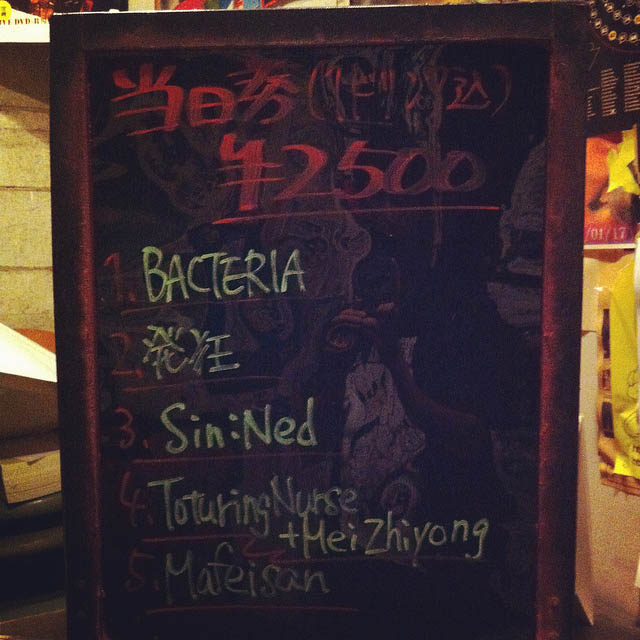 当日券(1ドリンク込)
¥2500
1. BACTERIA
2. 発狂
3. Sin:Ned
4. ToturingNurse
+MeiZhiyong
5. Mafeisan
/01/17